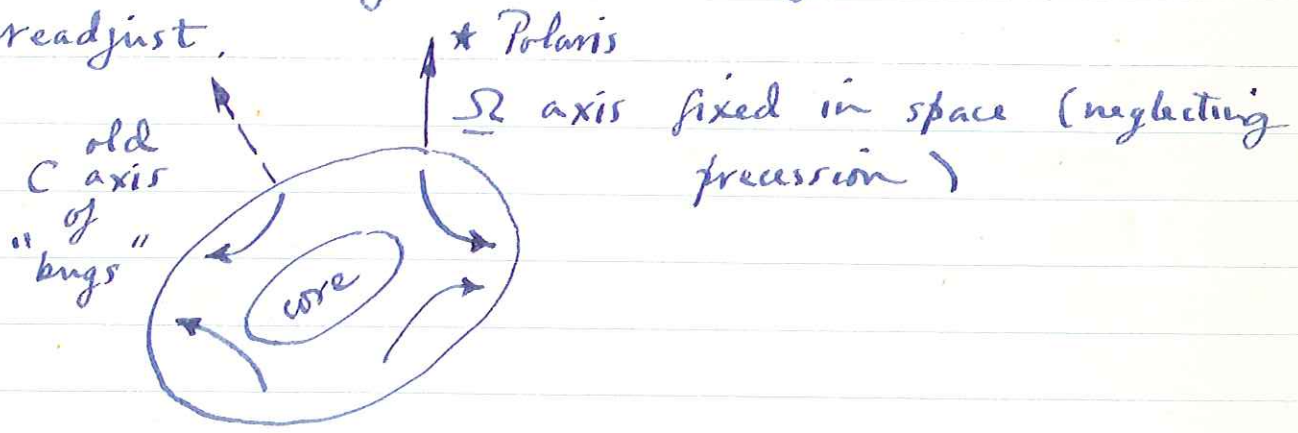 readjust.
★ Polaris
Ω axis fixed in space (neglecting
precession)
old
C axis
of
"bugs"
core